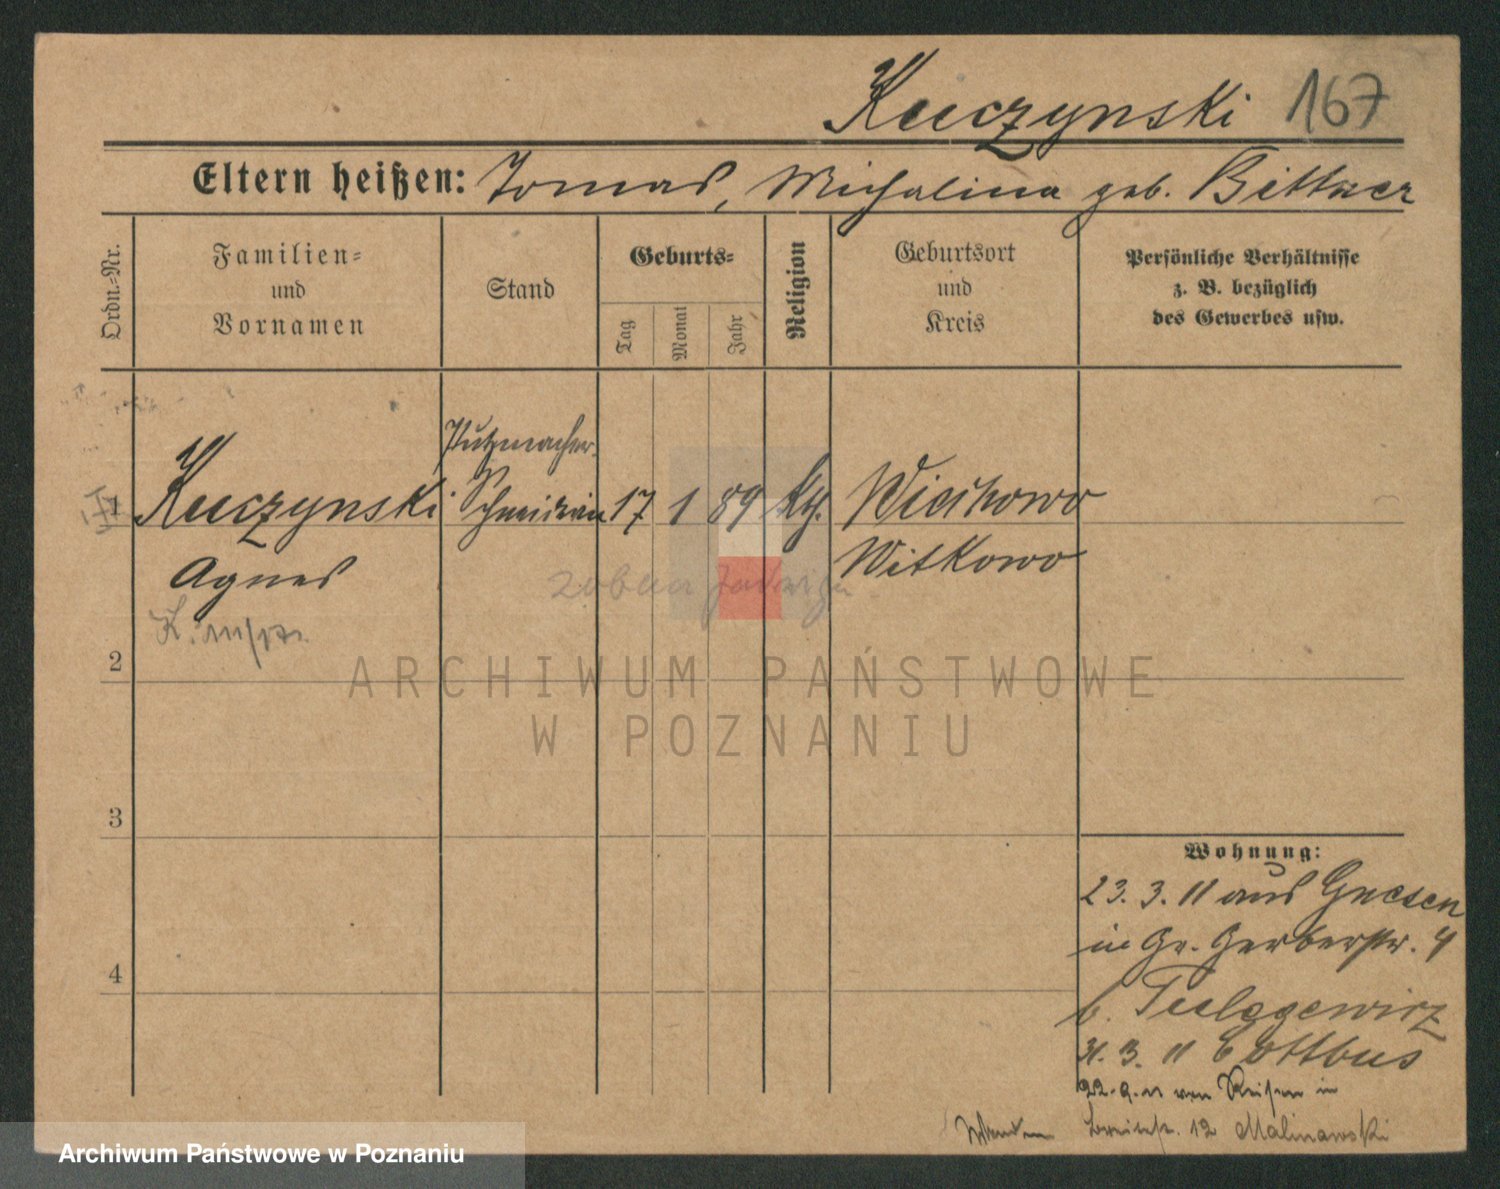 Kuczynski 167
Eltern heißen: Tomas, Michalina geb. Bittner
Ordn.-Nr.
Familien-
und
Vornamen
Stand
Geburts-
Tag
Monat
Jahr
Religion
Geburtsort
und
Kreis
Persönliche Verhältnisse
z. B. bezüglich
des Gewerbes usw.
1
Kuczynski
Agnes
Putzmacher-
Schneiderin
17
1
89
kth.
Wiechowo
Witkowo
zobacz Jadwiga
2
3
4
Wohnung:
23. 3. 11 aus Gnesen
in Gr. Gerberstr. 4
b.
31. 3. 11 Cottbus
22. 9. 11 von Reisen in
Breitestr. 12 Malinowski
ARCHIWUM PAŃSTWOWE
W POZNANIU
Archiwum Państwowe w Poznaniu